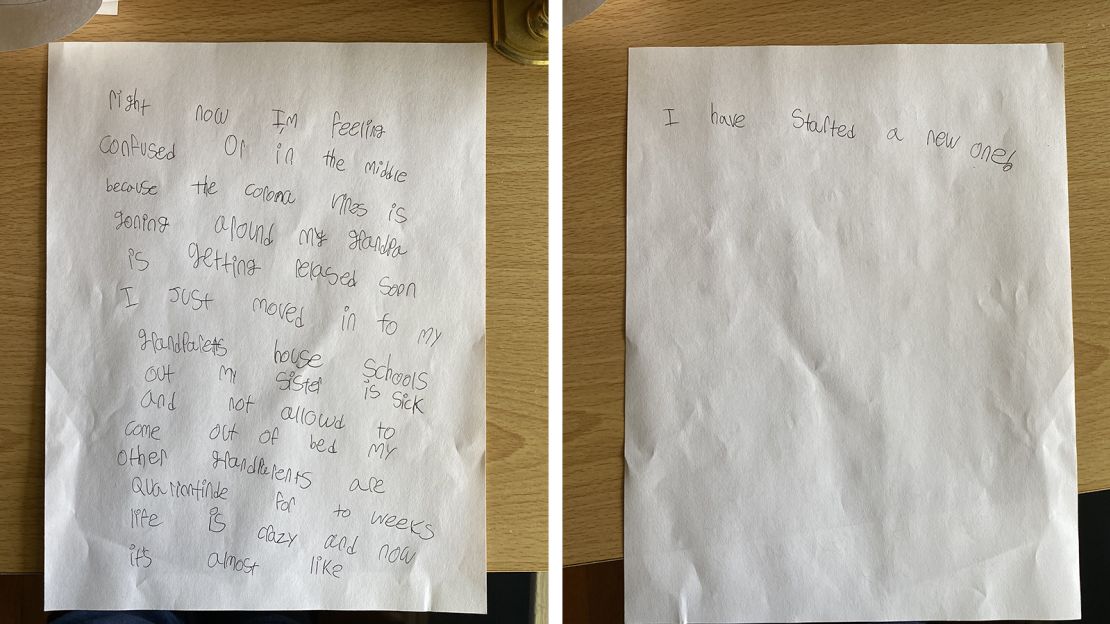 right now I,m feeling
confused Or in the middle
because the corona vires is
goning around my grandpa
is getting relased soon
I just moved in to my
grandparets house schools
out my sister is sick
and not allowd to
come out of bed my
other grandparents are
Quarriontinde for to weeks
life is crazy and now
it's almost like
I have Started a new one.